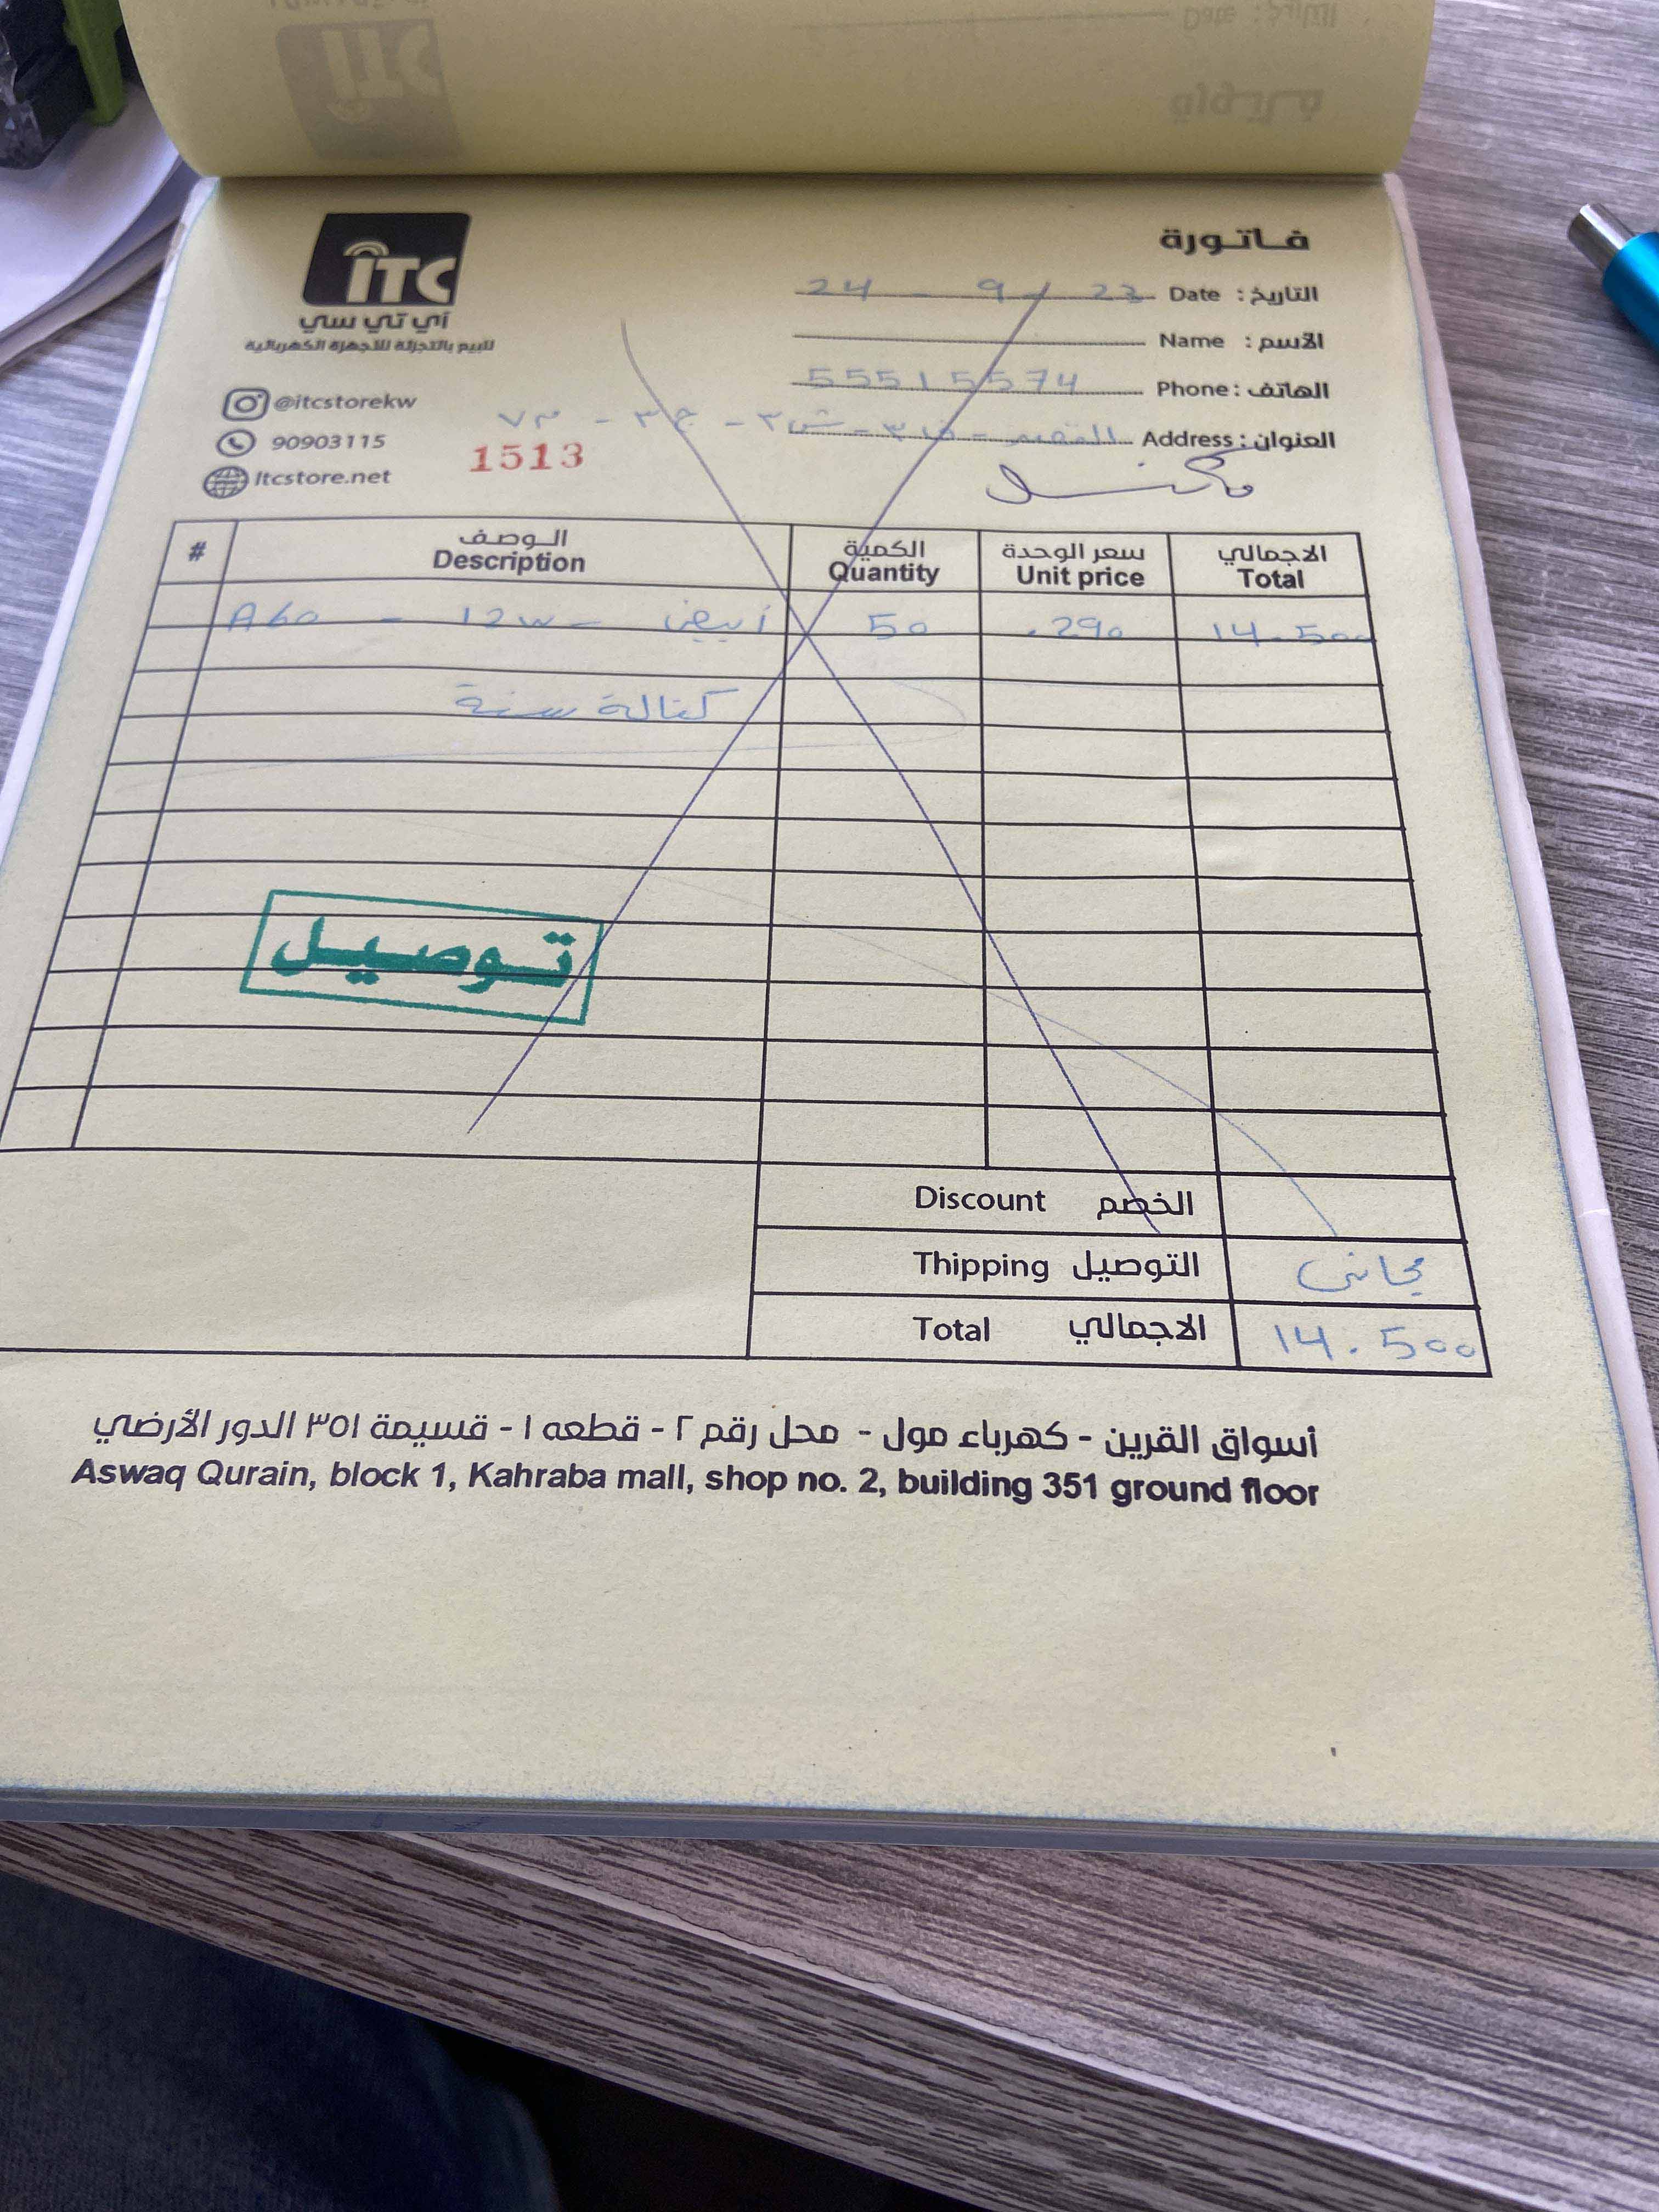 فاتورة
ITC
آي تي سي
للبيع بالتجزئة للأجهزة الكهربائية
التاريخ : Date 24 - 9 / 23
الأسم : Name
الهاتف : Phone 55515574
العنوان : Address
@itcstorekw
90903115
Itcstore.net
1513
# الوصف Description الكمية Quantity سعر الوحدة Unit price الاجمالي Total
A60 - 12w - أبيض 50 .290 14.500
كفالة سنة
توصيل
Discount الخصم
Thipping التوصيل مجاني
Total الاجمالي 14.500
أسواق القرين - كهرباء مول - محل رقم ٢ - قطعه ١ - قسيمة ٣٥١ الدور الأرضي
Aswaq Qurain, block 1, Kahraba mall, shop no. 2, building 351 ground floor